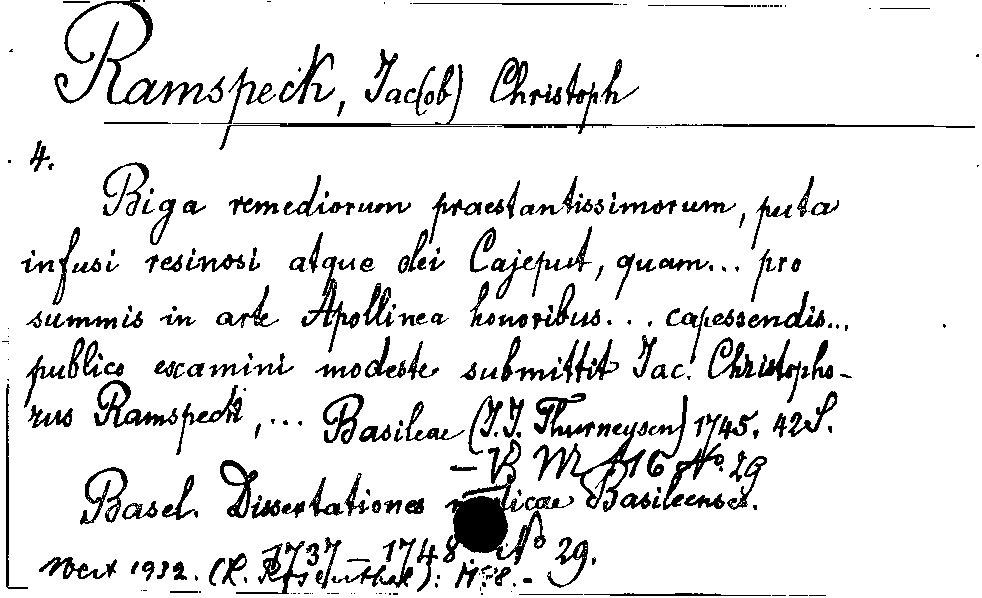 Ramspeck, Jac(ob) Christoph
4.
Biga remediorum praestantissimorum, puta
infusi resinosi atque olei Cajeput, quam... pro
summis in arte Apollinea honoribus... capessendis...
publico examini modeste submittit Jac. Christopho-
rus Ramspeck, ... Basileae (J.J. Thurneysen) 1745. 42 S.
Basel. Dissertationes medicae Basileenses.
1737–1748 No 29.
1932. (L. Rosenthal): M. 8.-